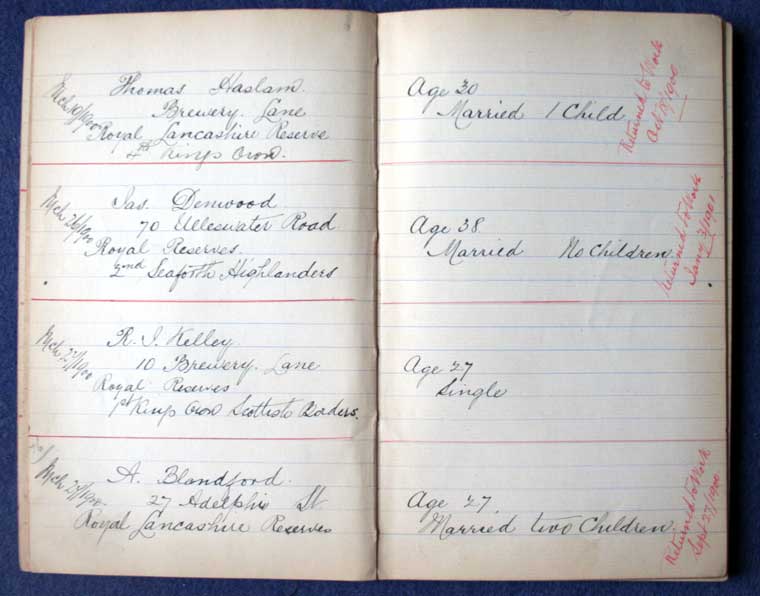 Mch 19/1900
Thomas Haslam.
Brewery. Lane
Royal Lancashire Reserve
4th Kings Own.
Age 30
Married 1 Child
Returned to Work
Oct 1900
Mch 26/1900
Jas. Denwood.
70 Ulleswater Road
Royal Reserves.
2nd Seaforth Highlanders
Age 38
Married No Children.
Returned to Work
Jany 3/1901
Mch 27/1900
R. J. Kelley.
10 Brewery. Lane
Royal Reserves
1st Kings Own Scottish Borders.
Age 27
Single
Mch 27/1900
A. Blandford.
27 Adelphi St.
Royal Lancashire Reserves
Age 27.
Married two Children.
Returned to Work
Sept 27/1900